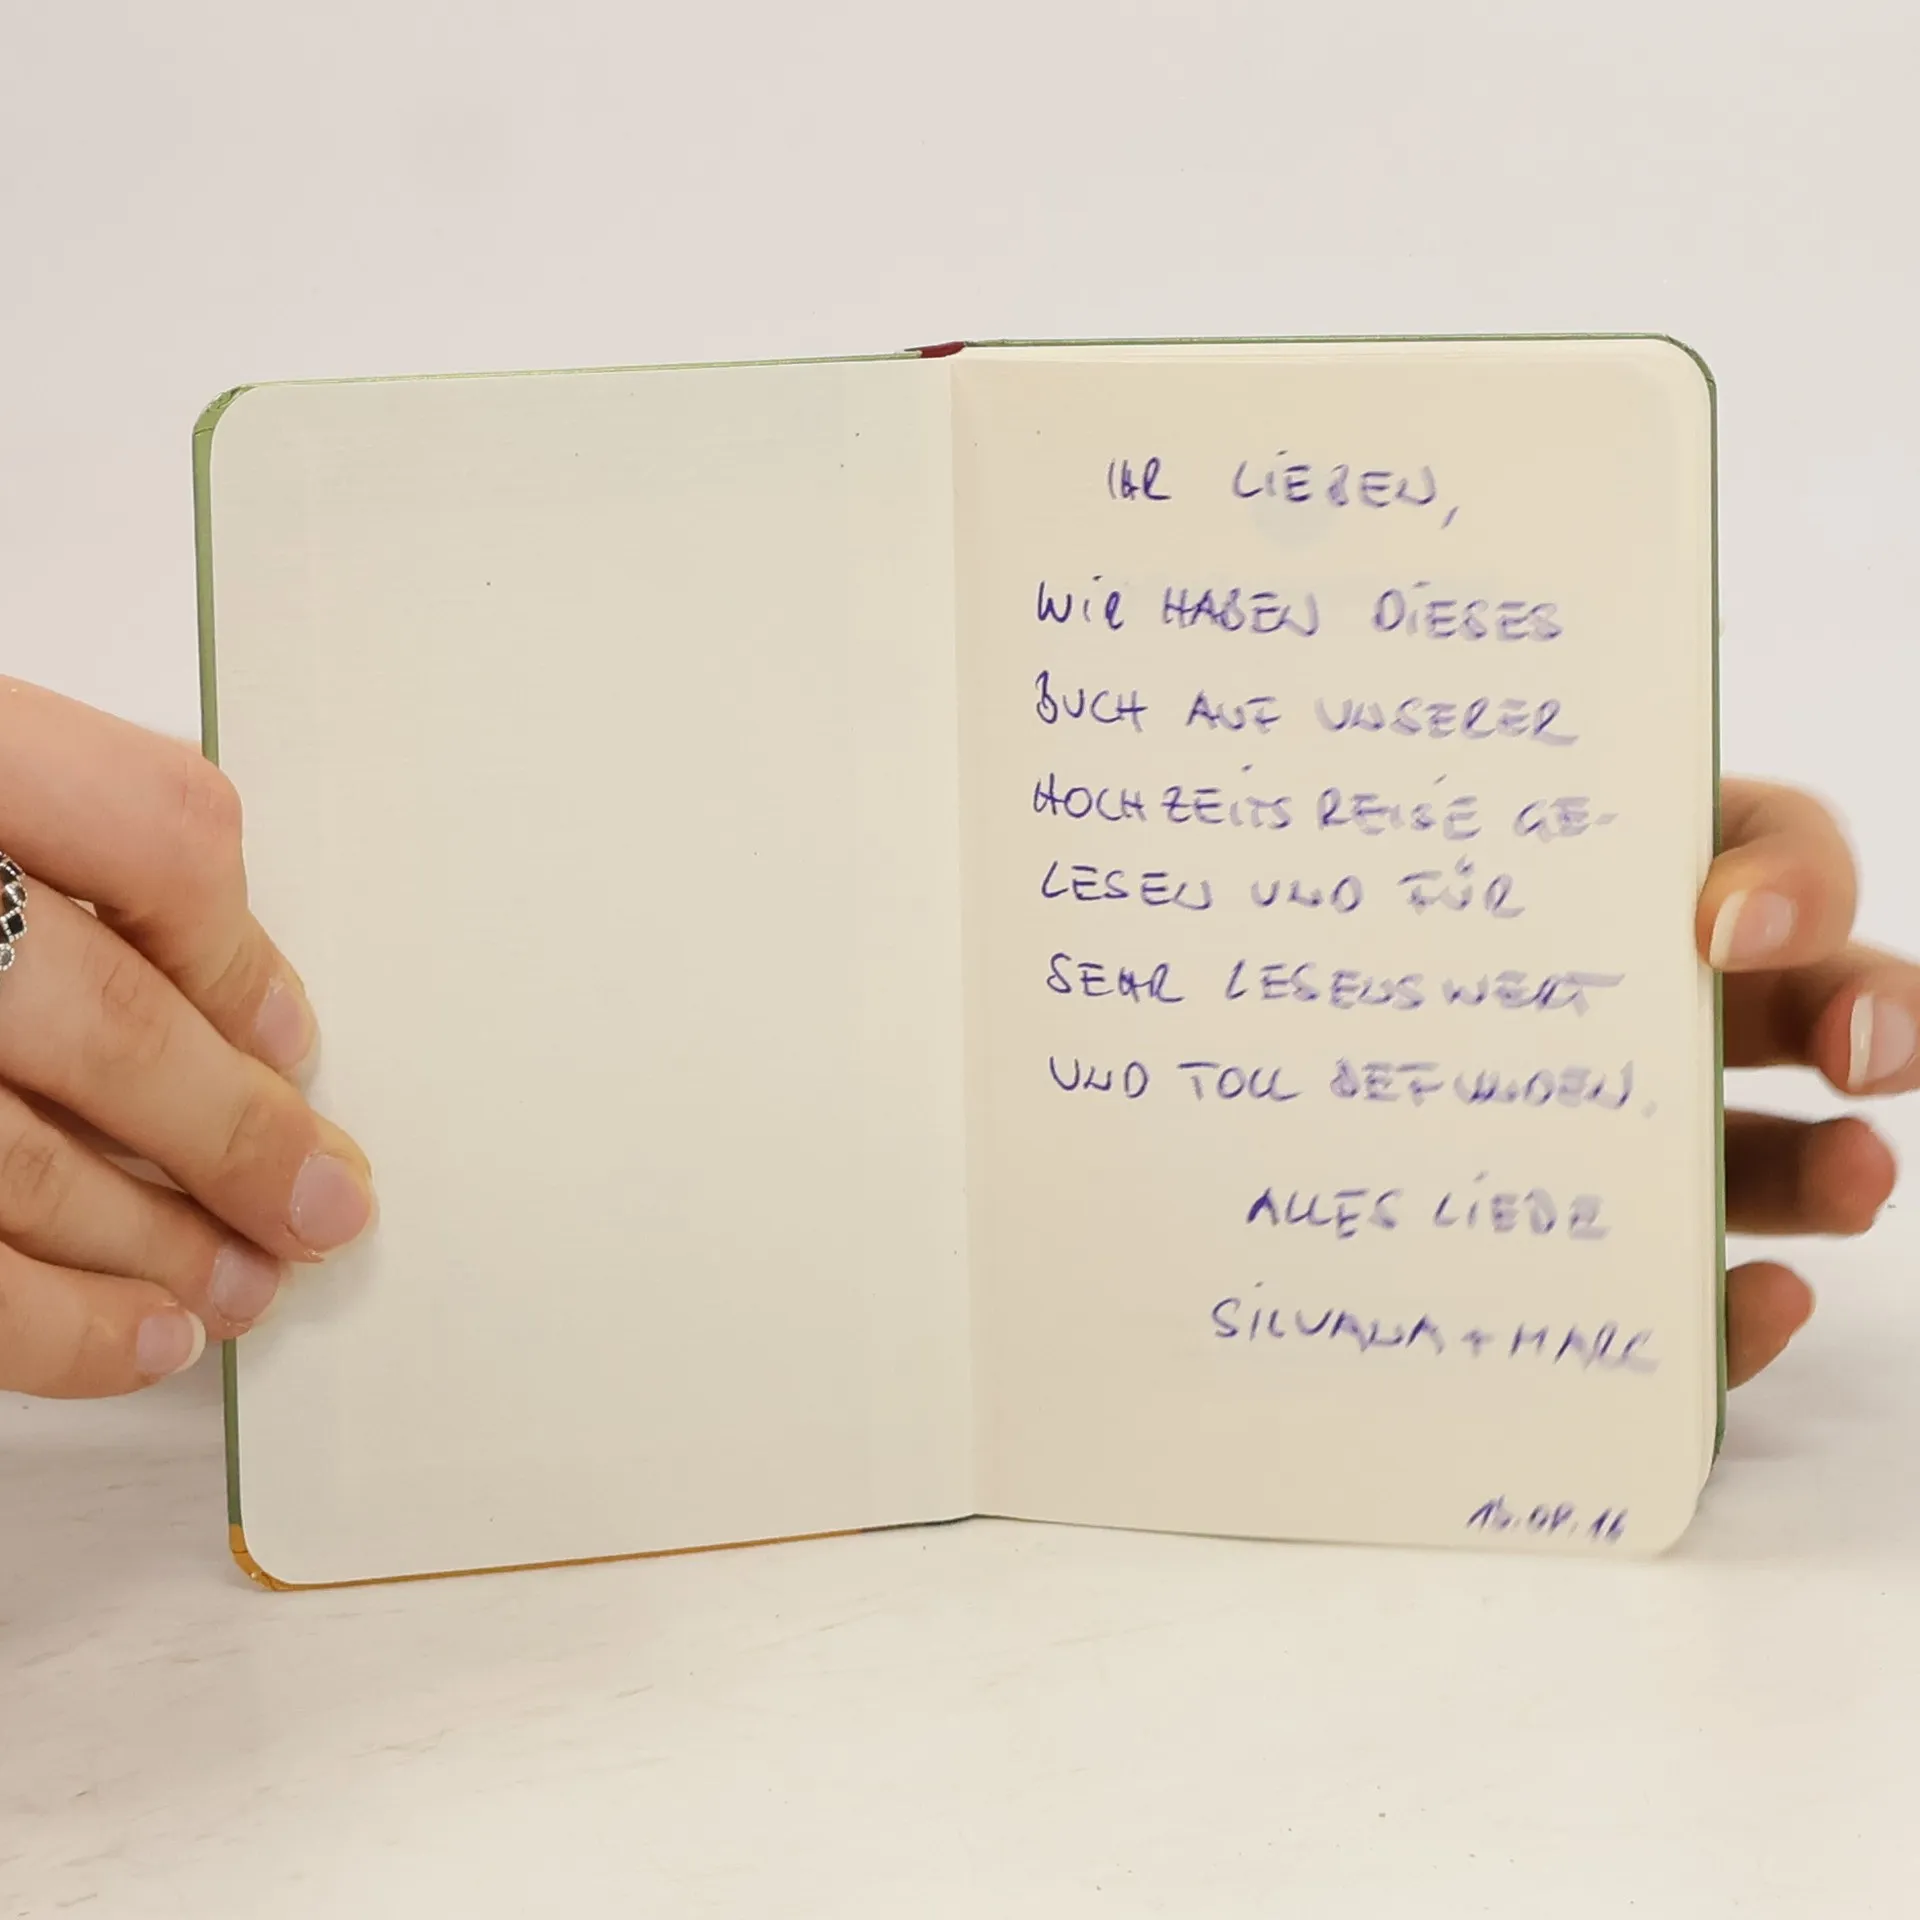 IHR LIEBEN,
WIR HABEN DIESES
BUCH AUF UNSERER
HOCHZEITSREISE GE-
LESEN UND FÜR
SEHR LESENSWERT
UND TOLL BEFUNDEN.
ALLES LIEBE
SILVANA + MARC